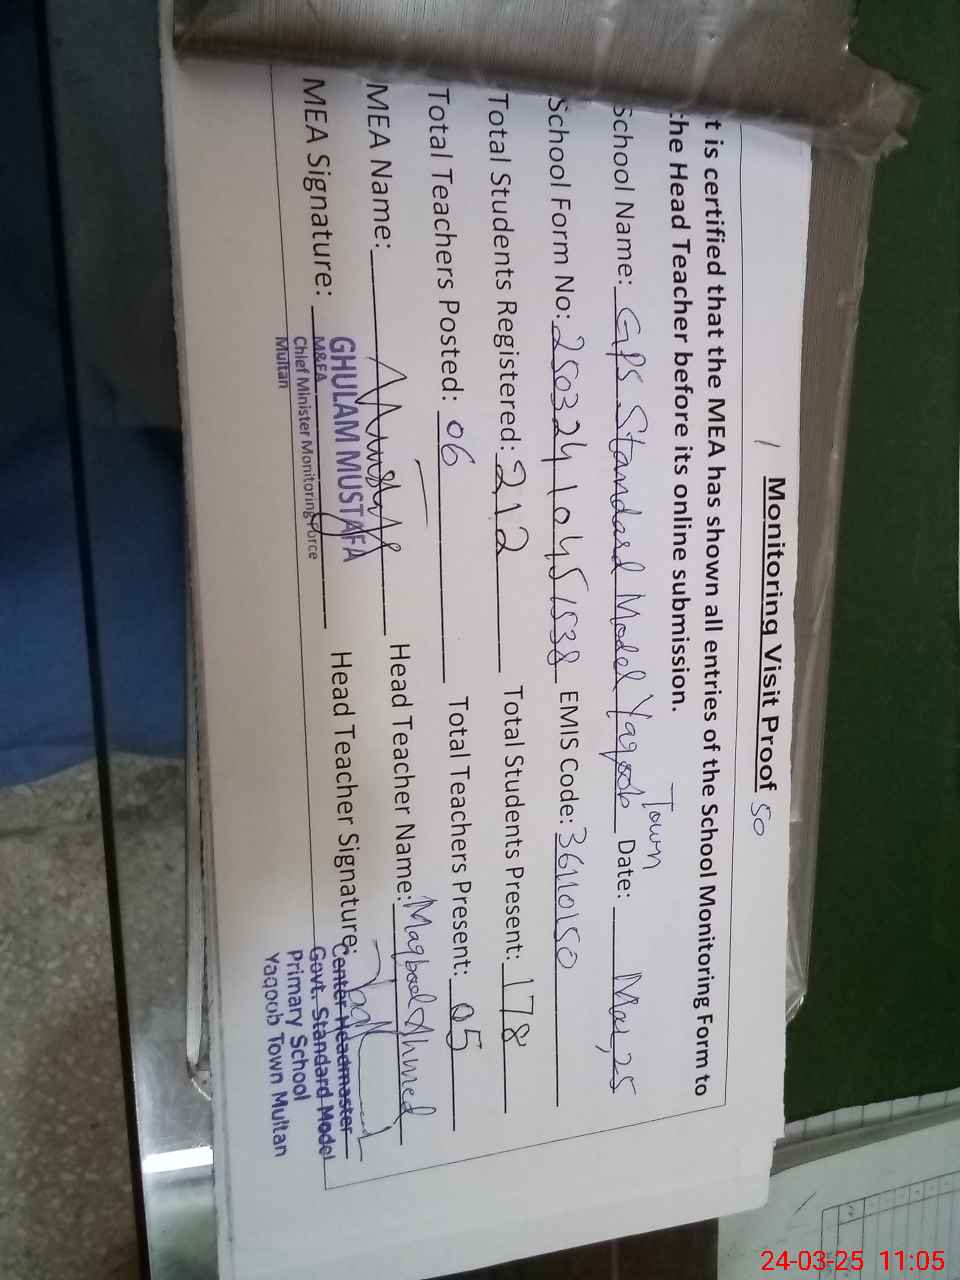 Monitoring Visit Proof 50
t is certified that the MEA has shown all entries of the School Monitoring Form to
the Head Teacher before its online submission.
School Name: GPS Standard Model Yaqoob Town Date: Mar, 25
School Form No: 25032410451538 EMIS Code: 36110150
Total Students Registered: 212 Total Students Present: 178
Total Teachers Posted: 06 Total Teachers Present: 05
MEA Name: Head Teacher Name: Maqbool Ahmed
MEA Signature: Head Teacher Signature:
GHULAM MUSTAFA
M&EA
Chief Minister Monitoring Force
Multan
Center Headmaster
Govt. Standard Model
Primary School
Yaqoob Town Multan
24-03-25 11:05